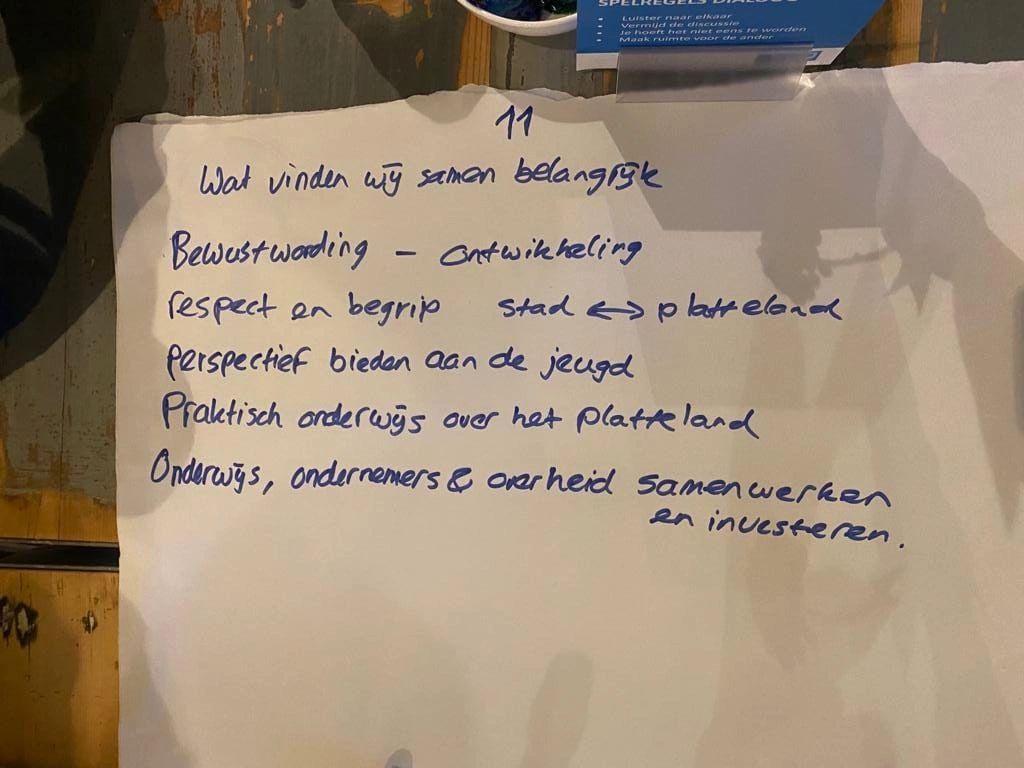 SPELREGELS DIALOOG
Luister naar elkaar
Vermijd de discussie
Je hoeft het niet eens te worden
Maak ruimte voor de ander
11
Wat vinden wij samen belangrijk
Bewustwording – ontwikkeling
respect en begrip stad ↔ platteland
perspectief bieden aan de jeugd
Praktisch onderwijs over het platteland
Onderwijs, ondernemers & overheid samenwerken
en investeren.